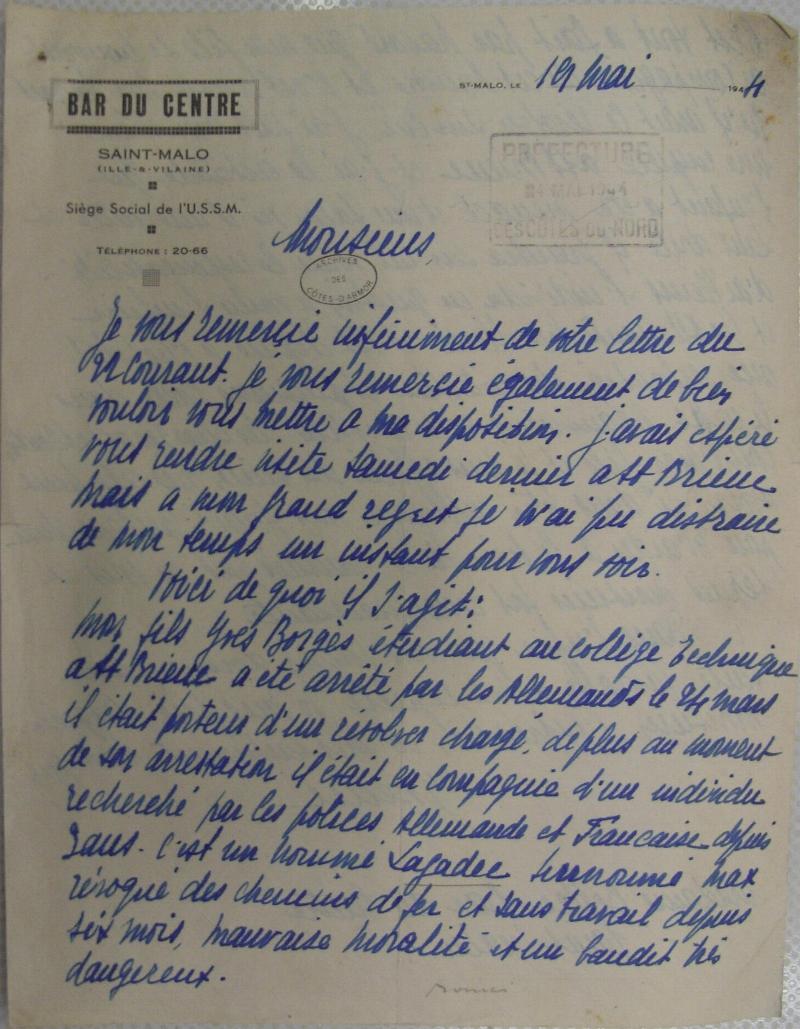 BAR DU CENTRE
SAINT-MALO
(ILLE-&-VILAINE)
Siège Social de l'U.S.S.M.
TÉLÉPHONE : 20-66
ST-MALO, LE 1er mai 1944
PRÉFECTURE
4 MAI 1944
DES COTES-DU-NORD
Monsieur,
ARCHIVES
DES
CÔTES-D'ARMOR
Je vous remercie infiniment de votre lettre du
22 Courant. je vous remercie également de bien
vouloir vous mettre a ma disposition. j'avais espéré
vous rendre visite Samedi dernier a St Brieuc
mais a mon grand regret je n'ai pu distraire
de mon temps un instant pour vous voir.
Voici de quoi il s'agit :
mon fils Yves Borgès étudiant au collège Technique
a St Brieuc a été arrêté par les Allemands le 24 mars
il était porteur d'un révolver chargé, de plus au moment
de son arrestation il était en compagnie d'un individu
recherché par les polices Allemande et Française depuis
3 ans. C'est un nommé Lagadec surnommé Max
révoqué des chemins de fer et sans travail depuis
six mois, mauvaise moralité et un bandit très
dangereux.